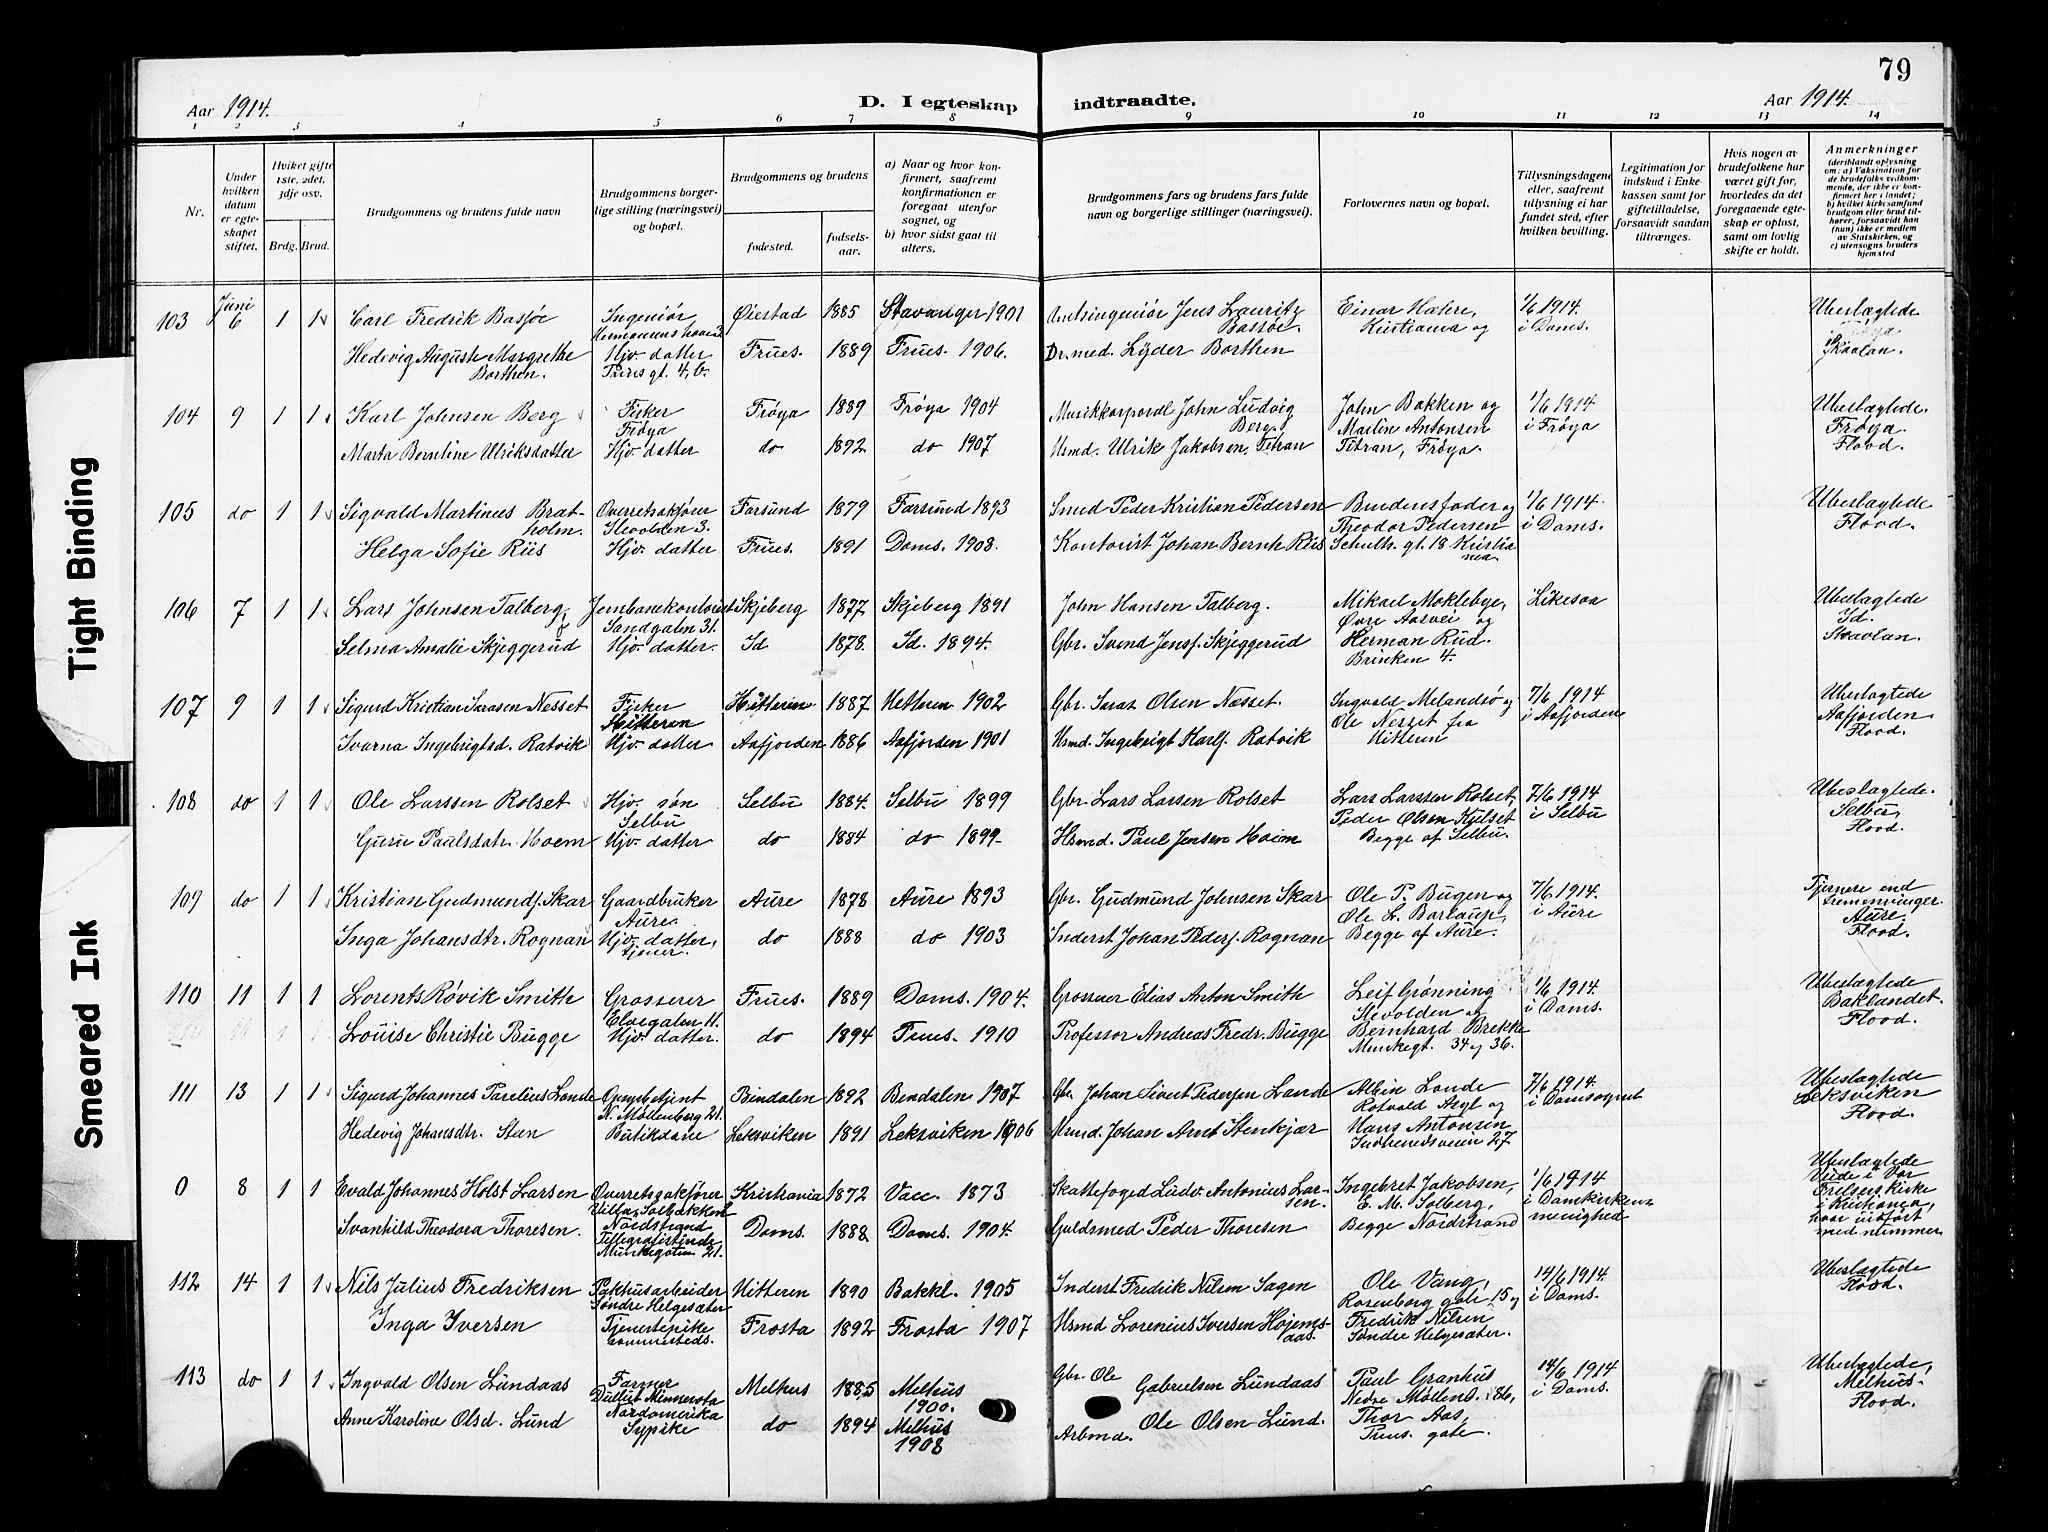 79
Aar 1914.
D. I egteskap indtraadte.
Aar 1914.
1 2 3 4 5 6 7 8 9 10 11 12 13 14
Nr.
Under hvilken datum er egteskapet stiftet.
Hviket gifte 1ste, 2det, 3dje osv.
Brdg. Brud.
Brudgommens og brudens fulde navn
Brudgommens borgerlige stilling (næringsvei) og bopæl.
Brudgommens og brudens
fødested.
fødselsaar.
a) Naar og hvor konfirmert, saafremt konfirmationen er foregaat utenfor sognet, og
b) hvor sidst gaat til alters.
Brudgommens fars og brudens fars fulde navn og borgerlige stillinger (næringsvei).
Forlovernes navn og bopæl.
Tillysningsdagene eller, saafremt tillysning ei har fundet sted, efter hvilken bevilling.
Legitimation for indskud i Enkekassen samt for giftetilladelse, forsaavidt saadan tiltrænges.
Hvis nogen av brudefolkene har været gift før, hvorledes da det foregaaende egteskap er opløst, samt om lovlig skifte er holdt.
Anmerkninger
(deriblandt oplysning om: a) Vaksination for de brudefolks vedkommende, der ikke er konfirmert her i landet;
b) hvilket kirkesamfund brudgom eller brud tilhører, forsaavidt han (hun) ikke er medlem av Statskirken, og
c) utensogns bruders hjemsted
103 Juni 6 1 1 Carl Fredrik Bassøe Ingeniør Øiestad 1885 Stavanger 1901 Amtsingeniør Jens Lauritz Bassøe. Einar Hæhre, Kristiania og 1/6 1914. i Doms. Ubeslægtede
Hedevig Auguste Margrethe Borthen. Hjv. datter Prins gt. 4, b. Frues. 1889 Frues. 1906. Dr. med. Lyder Borthen Skavlan.
104 9 1 1 Karl Johnsen Berg Fisker Frøya Frøya 1889 Frøya 1904 Musikkorporal John Ludvig Berg. John Bakken og Martin Antonsen Titran, Frøya. 1/6 1914 i Frøya Ubeslægtede. Frøya. Flood.
Marta Berntine Ulriksdatter Hjv. datter do 1892 do 1907 Husmd. Ulrik Jakobsen, Titran
105 do 1 1 Sigvald Martinus Bratholm. Overretssakfører Ilevolden 3. Farsund 1879 Farsund 1893 Smed Peder Kristian Pedersen Brudens fader og Theodor Pedersen Schults. gt. 18 Kristiania 1/6 1914. i Doms. Ubeslægtede Flood.
Helga Sofie Riis Hjv. datter Frues. 1891 Doms. 1908. Kontorist Johan Bernh. Riis
106 7 1 1 Lars Johnsen Talberg, Jernbanekontorist Sandgaten 31. Skjeberg 1877 Skjeberg 1891 John Hansen Talberg. Mikael Moklebye, Øvre Aasvei og Herman Rud. Brinken 4. Likesaa Ubeslægtede Id. Skavlan.
Selma Amalie Skjeggerud Hjv. datter. Id 1878. Id. 1894. Gbr. Svend Jensf. Skjeggerud
107 9 1 1 Sigurd Kristian Sarasen Nesset Fisker Hitteren Hitteren 1887 Hitteren 1902 Gbr. Saras Olsen Næsset. Ingvald Melandsø og Ole Nesset fra Hitteren 7/6 1914 i Aafjorden Ubeslægtede Aafjorden. Flood.
Ivarna Ingebrigtsd. Ratvik Hjv. datter Aafjorden 1886 Aafjorden 1901 Husmd. Ingebrigt Karlf. Ratvik
108 do 1 1 Ole Larssen Rolset Hjv. søn Selbu Selbu 1884. Selbu 1899 Gbr. Lars Larsen Rolset Lars Larssen Rolset, Peder Olsen Kjelset Begge af Selbu. 7/6 1914 i Selbu Ubeslægtede. Selbu, Flood.
Guru Paulsdatr. Moem Hjv. datter do 1884 do 1899. Hsmd. Paul Jensen Moem
109 do 1 1 Kristian Gudmundf. Skar Gaardbruker Aure. Aure 1878 Aure 1893 Gbr. Gudmund Johnsen Skar Ole P. Bugen og Ole L. Bortaup, Begge af Aure. 7/6 1914. i Aure Fjernere end tremenninger. Aure. Flood.
Inga Johansdtr. Rognan Hjv. datter, tjener. do 1888 do 1903 Inderst Johan Pederf. Rognan
110 11 1 1 Lorents Røvik Smith Grosserer Elvegaten 11. Frues. 1889 Doms. 1904. Grosserer Elias Anton Smith Leif Grønning Ilevolden og Bernhard Brekke Munkegt. 34 og 36. 1/6 1914. i Doms. Ubeslægtede Baklandet. Flood.
Louise Christie Bugge Hjv. datter. do 1894 Frues. 1910 Professor Andreas Fredr. Bugge
111 13 1 1 Sigurd Johannes Parelius Lande Opsynsbetjent N. Møllenberg 21. Bindalen 1892 Bindalen 1907 Gbr. Johan Sivert Pedersen Lande Albin Lande Rotvald Asyl og Hans Antonsen Indherredsveien 27 7/6 1914. i Domsognet Ubeslægtede Leksviken Flood.
Hedevig Johansdtr. Steen Butikdame Leksviken 1891 Leksviken 1906 Husmd. Johan Arnt Stenkjær
0 8 1 1 Evald Johannes Holst Larsen Overretssakfører Villa Solbakken Nordstrand Kristiania 1872 Vacc. 1873 Skattefoged Ludv. Antonius Larsen. Ingebret Jakobsen, E. M. Solberg, Begge Nordstrand 1/6 1914 i Domkirkens menighed Ubeslægtede Viede i Vor Frelsers Kirke i Kristiania, hvor indført med nummer
Svanhild Theodora Thoresen. Telegrafistinde Munkegaten 21. Doms. 1888 Doms. 1904. Guldsmed Peder Thoresen
112 14 1 1 Nils Julius Fredriksen Pakhusarbeider Søndre Helgesæter Hitteren 1890 Bakkl. 1905 Inderst Fredrik Nilsen Sagen Ole Vang, Rosenborg gate 15 og Fredrik Nilsen Søndre Helgesæter. 14/6 1914. i Doms. Ubeslægtede Flood.
Inga Iversen Tjenestepike sammesteds. Frosta 1892 Frosta 1907 Husmd Lorenius Iversen Højemsaas.
113 do 1 1 Ingvald Olsen Lundaas Farmer Duluth Minnesota Nordamerika Melhus 1885 Melhus 1900. Gbr. Ole Gabrielsen Lundaas Paul Granhus Nedre Møllenb. 86, Thor Aas, Frues. gate. 14/6 1914 i Doms. Ubeslægtede, Melhus. Flood.
Anne Karoline Olsd. Lund Sypike do 1894 Melhus 1908 Arbmd. Ole Olsen Lund.
Tight Binding
Smeared Ink